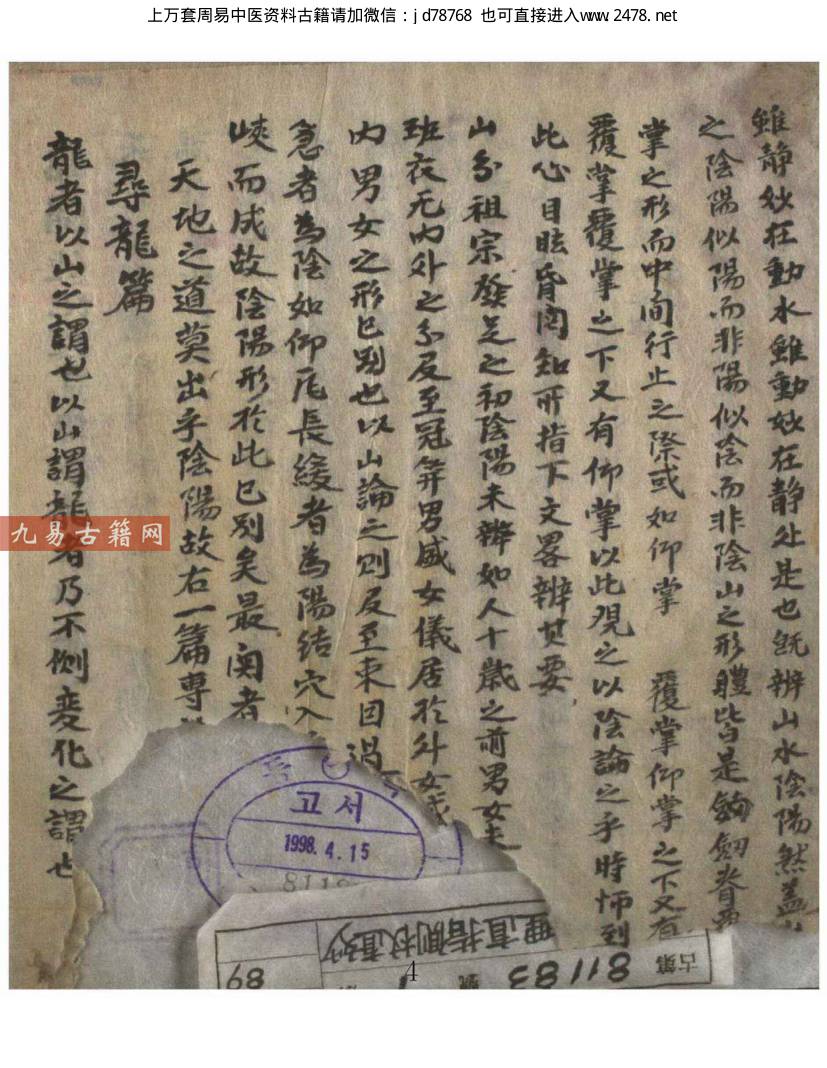 上万套周易中医资料古籍请加微信：jd78768 也可直接进入www.2478.net
雖静妙在動水雖動妙在静处是也旣辨山水陰陽然盖
之陰陽似陽而非陽似陰而非陰山之形軆皆是劔脊
掌之形而中间行止之際或如仰掌 覆掌仰掌之下又有
覆掌覆掌之下又有仰掌以此观之以陰論之乎時師到
此心目眩昏罔知所指下文畧辨其要
山分祖宗發足之初陰陽未辨如人十歲之前男女未
班衣无内外之分及至冠笄男盛女儀居於外女
内男女之形已别也以山論之则及至束
急者為陰如仰瓦長緩者為陽结穴入
峽而成故陰陽形於此已别矣最奥者
天地之道莫出乎陰陽故右一篇專
尋龍篇
龍者以山之謂也以山謂龍者乃不侧变化之謂也
九易古籍网
고서
1998. 4. 15
8118
理直指
古第
81183
號
68
4